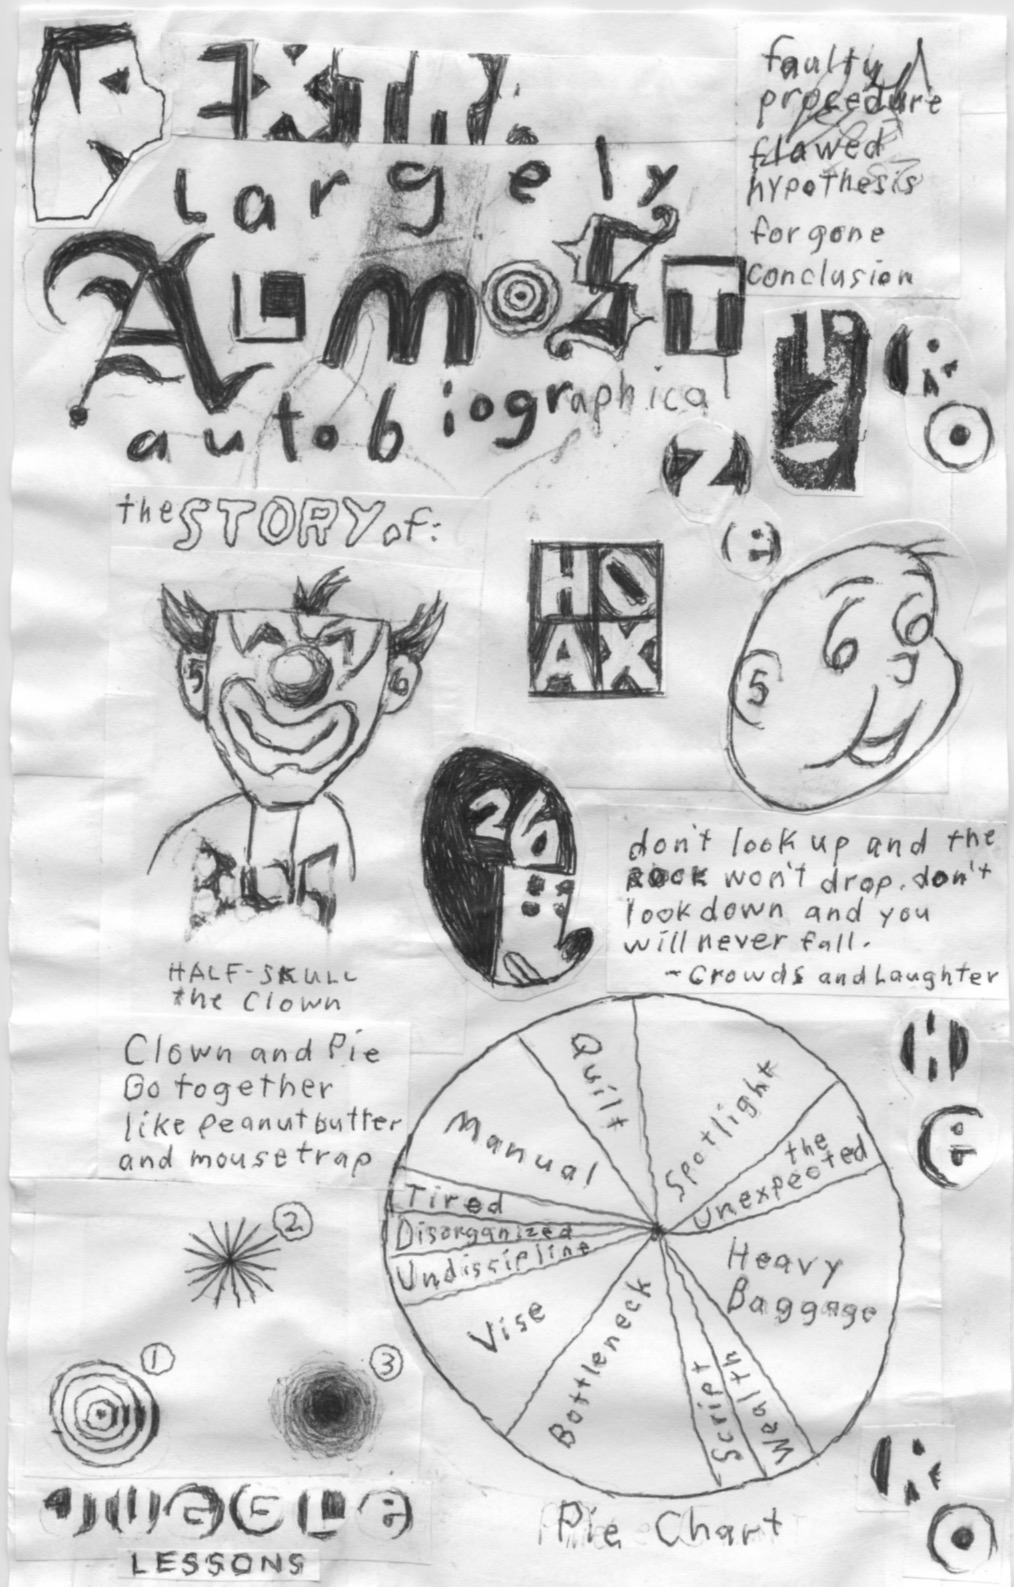 faulty
procedure
flawed
hypothesis
forgone
conclusion
largely
ALMOST
autobiographica
the STORY of:
HO
AX
5
6
Z
5
66
26
HALF-SKULL
the Clown
don't look up and the
ROCK won't drop. don't
look down and you
will never fall.
- Crowds and Laughter
Clown and Pie
Go together
like peanut butter
and mousetrap
Quilt
Spotlight
the
unexpected
Heavy
Baggage
Wealth
Script
Bottleneck
Vise
Undiscipline
Disorganized
Tired
Manual
Pie Chart
2
1
3
LESSONS